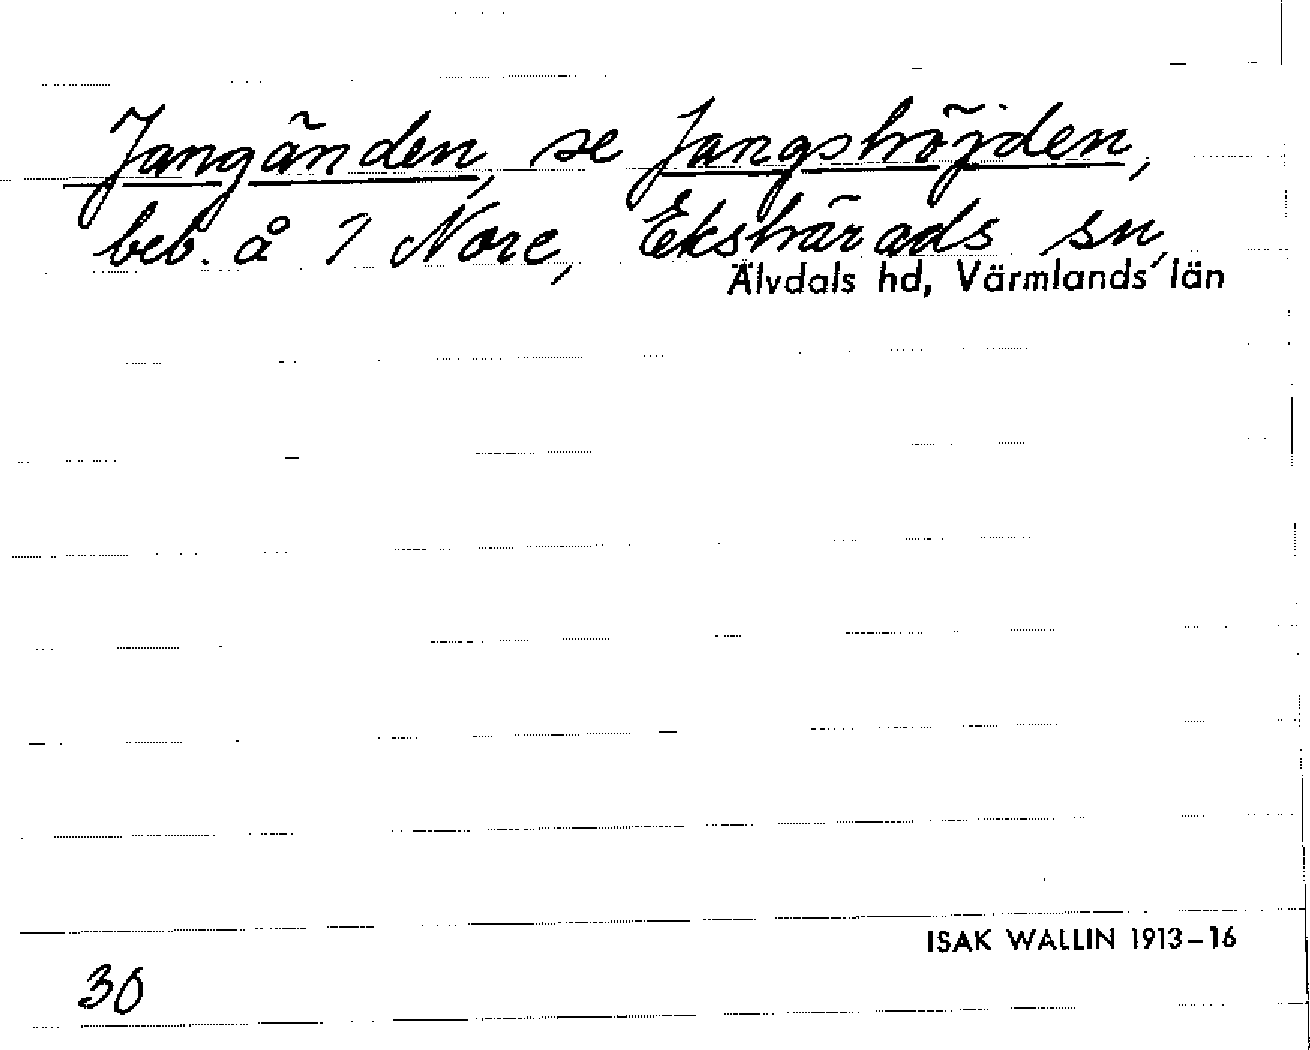 Jangänden, se Jangshöjden,
beb. å 7 Nore, Ekshärads sn,
Älvdals hd, Värmlands län
ISAK WALLIN 1913–16
30